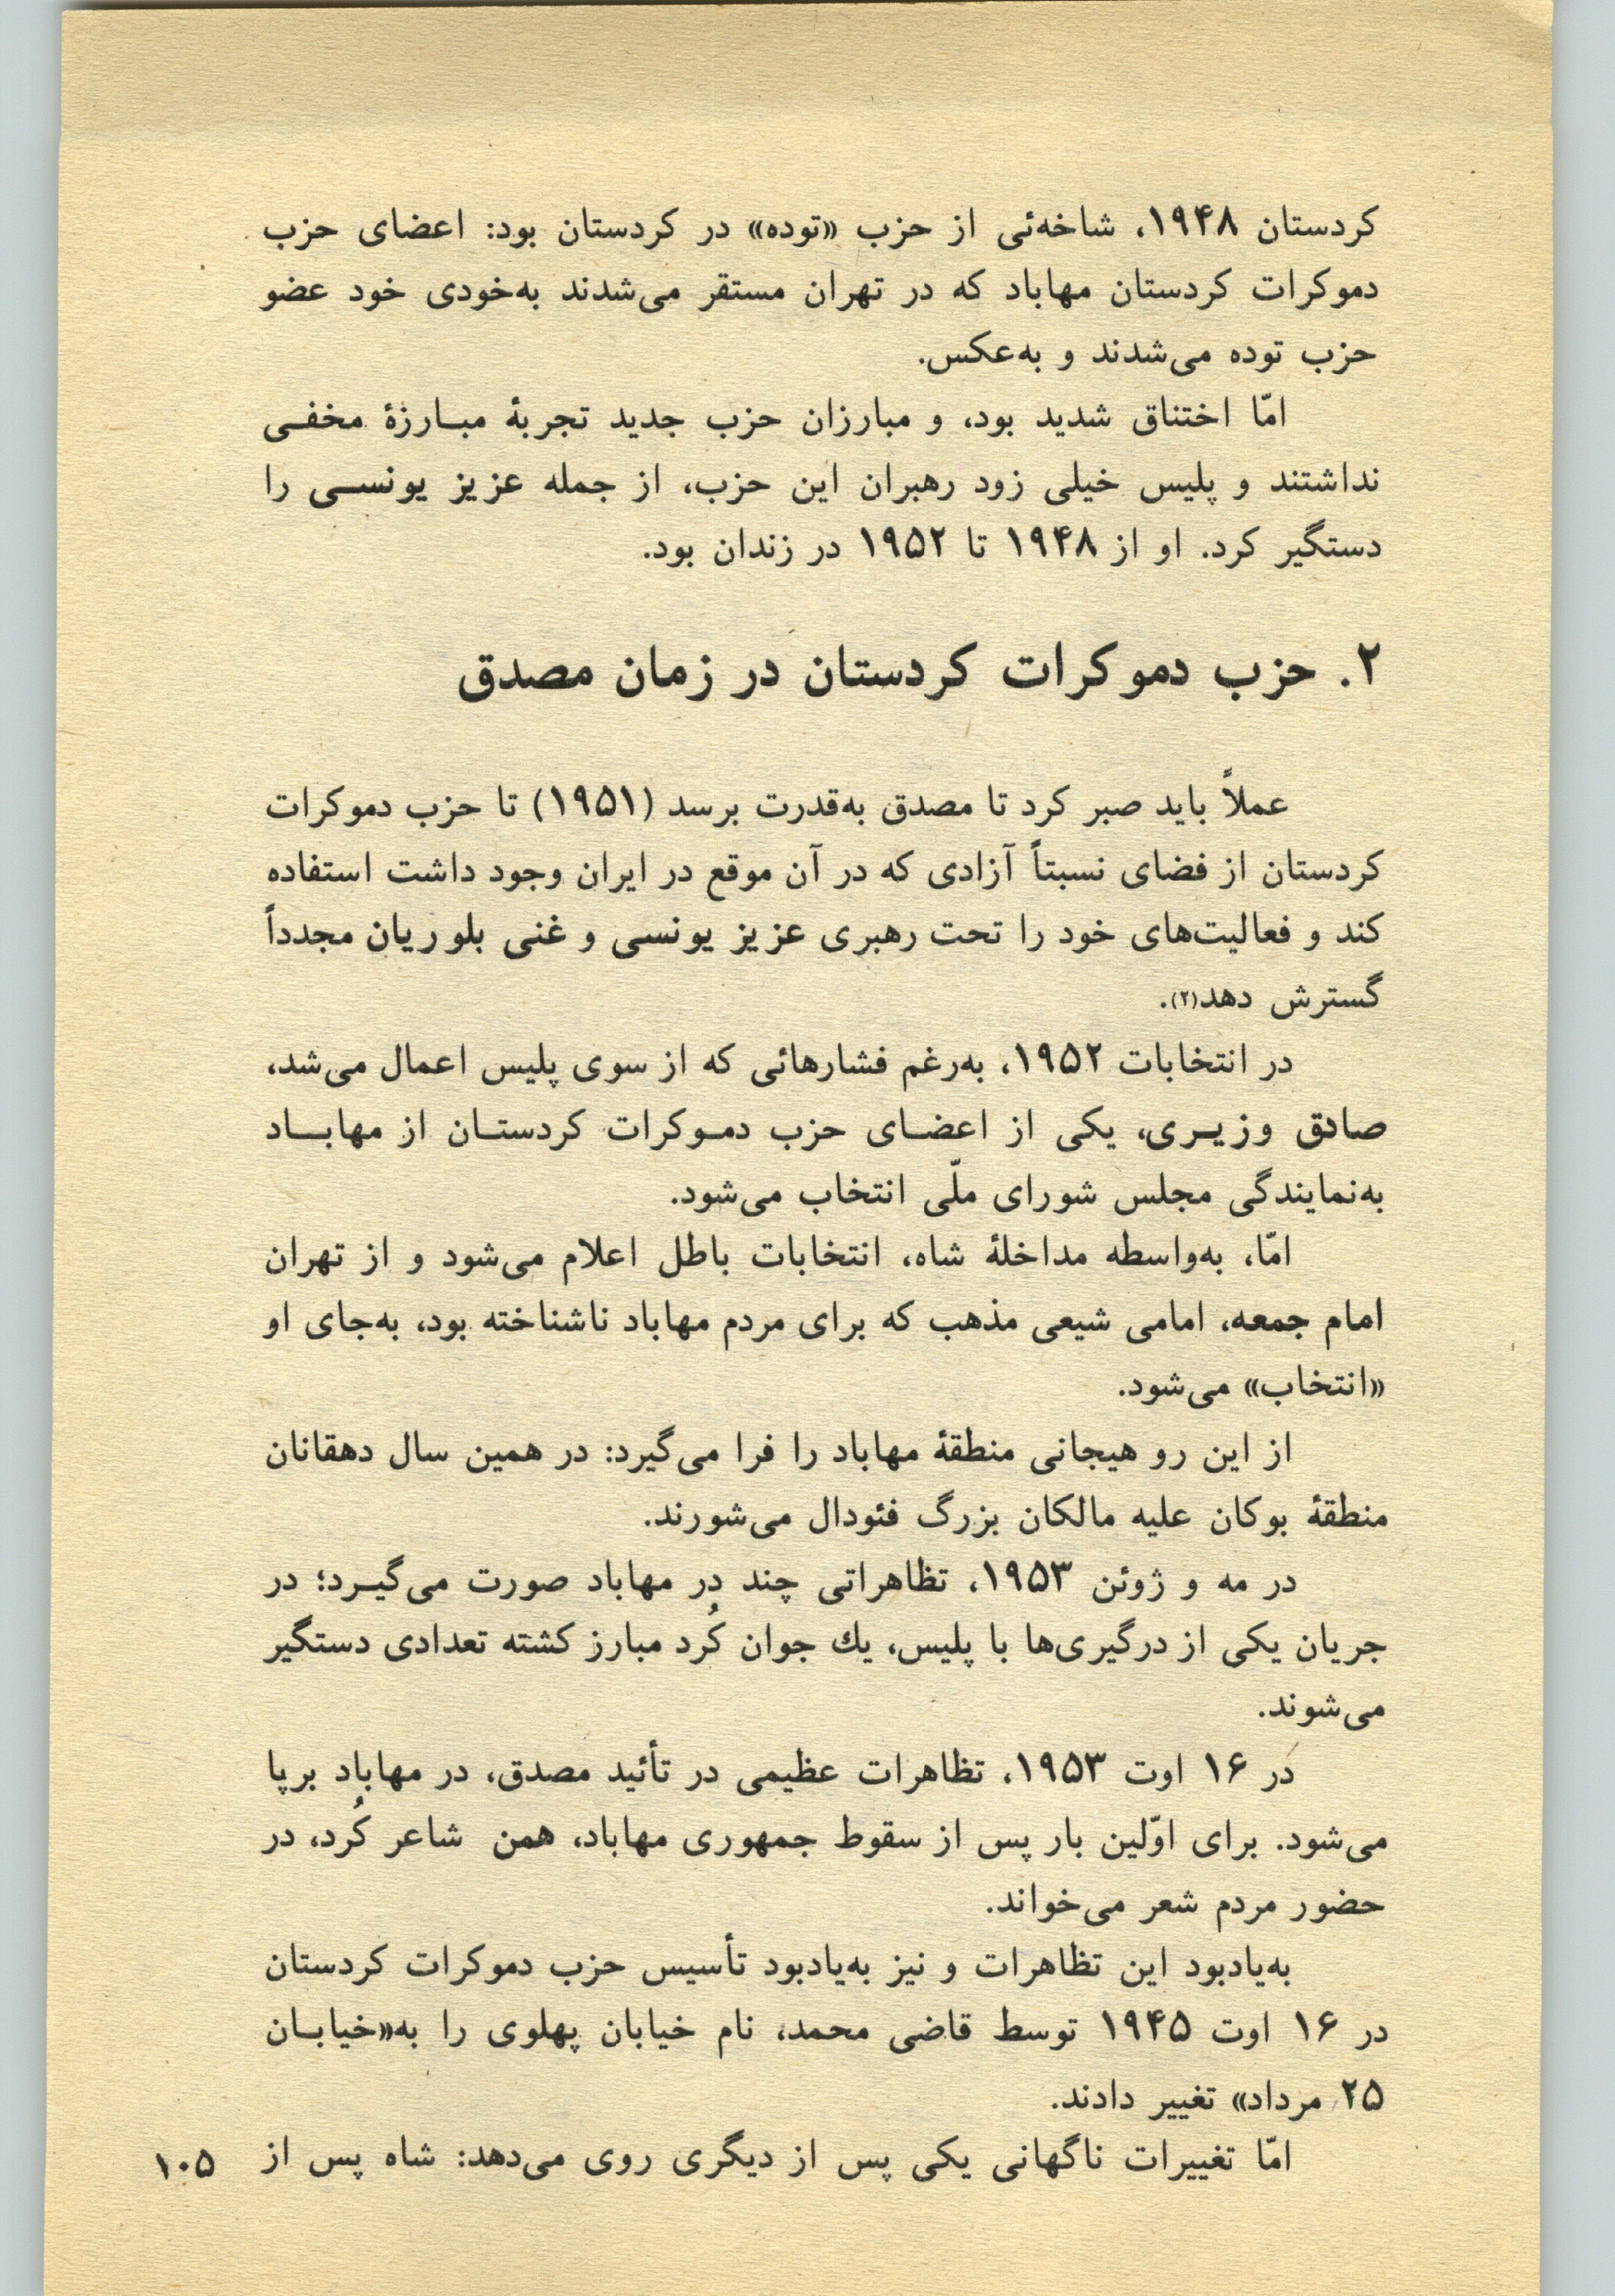 کردستان ۱۹۴۸، شاخه‌ئی از حزب «توده» در کردستان بود: اعضای حزب
دموکرات کردستان مهاباد که در تهران مستقر می‌شدند به‌خودی خود عضو
حزب توده می‌شدند و به‌عکس.
امّا اختناق شدید بود، و مبارزان حزب جدید تجربهٔ مبـارزهٔ مخفـی
نداشتند و پلیس خیلی زود رهبران این حزب، از جمله عزیز یونســی را
دستگیر کرد. او از ۱۹۴۸ تا ۱۹۵۲ در زندان بود.
۲. حزب دموکرات کردستان در زمان مصدق
عملاً باید صبر کرد تا مصدق به‌قدرت برسد (۱۹۵۱) تا حزب دموکرات
کردستان از فضای نسبتاً آزادی که در آن موقع در ایران وجود داشت استفاده
کند و فعالیت‌های خود را تحت رهبری عزیز یونسی و غنی بلوریان مجدداً
گسترش دهد(۲).
در انتخابات ۱۹۵۲، به‌رغم فشارهائی که از سوی پلیس اعمال می‌شد،
صادق وزیـری، یکی از اعضـای حزب دمـوکرات کردستـان از مهابـاد
به‌نمایندگی مجلس شورای ملّی انتخاب می‌شود.
امّا، به‌واسطه مداخلهٔ شاه، انتخابات باطل اعلام می‌شود و از تهران
امام جمعه، امامی شیعی مذهب که برای مردم مهاباد ناشناخته بود، به‌جای او
«انتخاب» می‌شود.
از این رو هیجانی منطقهٔ مهاباد را فرا می‌گیرد: در همین سال دهقانان
منطقهٔ بوکان علیه مالکان بزرگ فئودال می‌شورند.
در مه و ژوئن ۱۹۵۳، تظاهراتی چند در مهاباد صورت می‌گیـرد؛ در
جریان یکی از درگیری‌ها با پلیس، یك جوان کُرد مبارز کشته تعدادی دستگیر
می‌شوند.
در ۱۶ اوت ۱۹۵۳، تظاهرات عظیمی در تأئید مصدق، در مهاباد برپا
می‌شود. برای اوّلین بار پس از سقوط جمهوری مهاباد، همن شاعر کُرد، در
حضور مردم شعر می‌خواند.
به‌یادبود این تظاهرات و نیز به‌یادبود تأسیس حزب دموکرات کردستان
در ۱۶ اوت ۱۹۴۵ توسط قاضی محمد، نام خیابان پهلوی را به«خیابـان
۲۵ مرداد» تغییر دادند.
امّا تغییرات ناگهانی یکی پس از دیگری روی می‌دهد: شاه پس از
۱۰۵